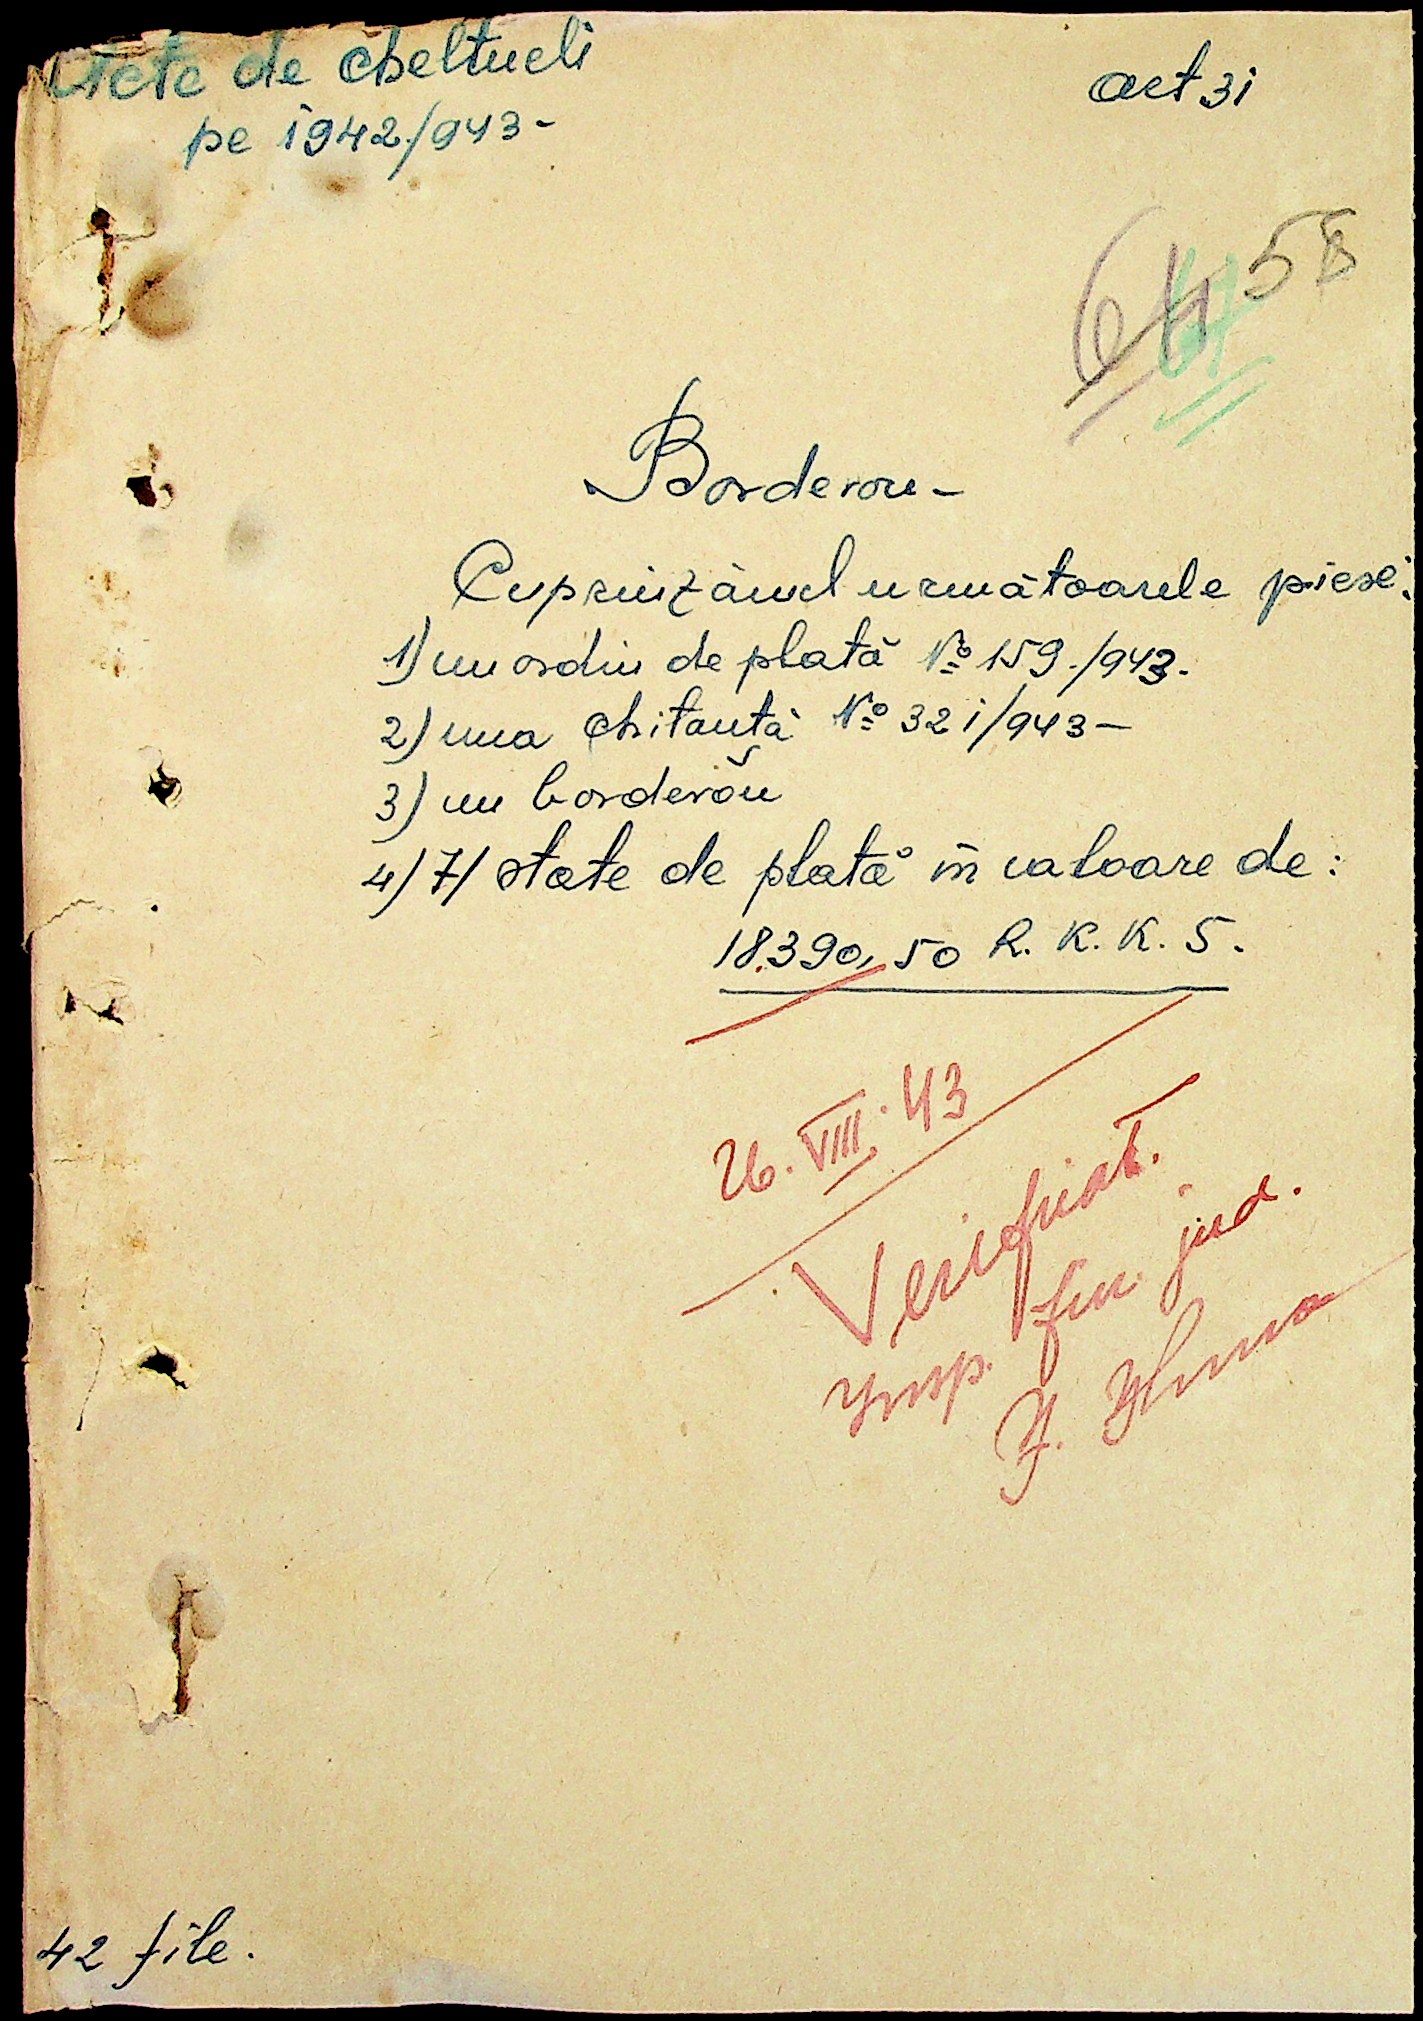 Acte de cheltueli
pe 1942/943-
act 31
64 58
Borderou-
Cuprinzând următoarele piese:
1) un ordin de plată № 159/943.
2) una chitanță № 321/943-
3) un borderou
4) 7/ state de plată în valoare de:
18.390,50 R. K. K. S.
26. VIII. 43
Verificat.
insp. fin. jud.
42 file.